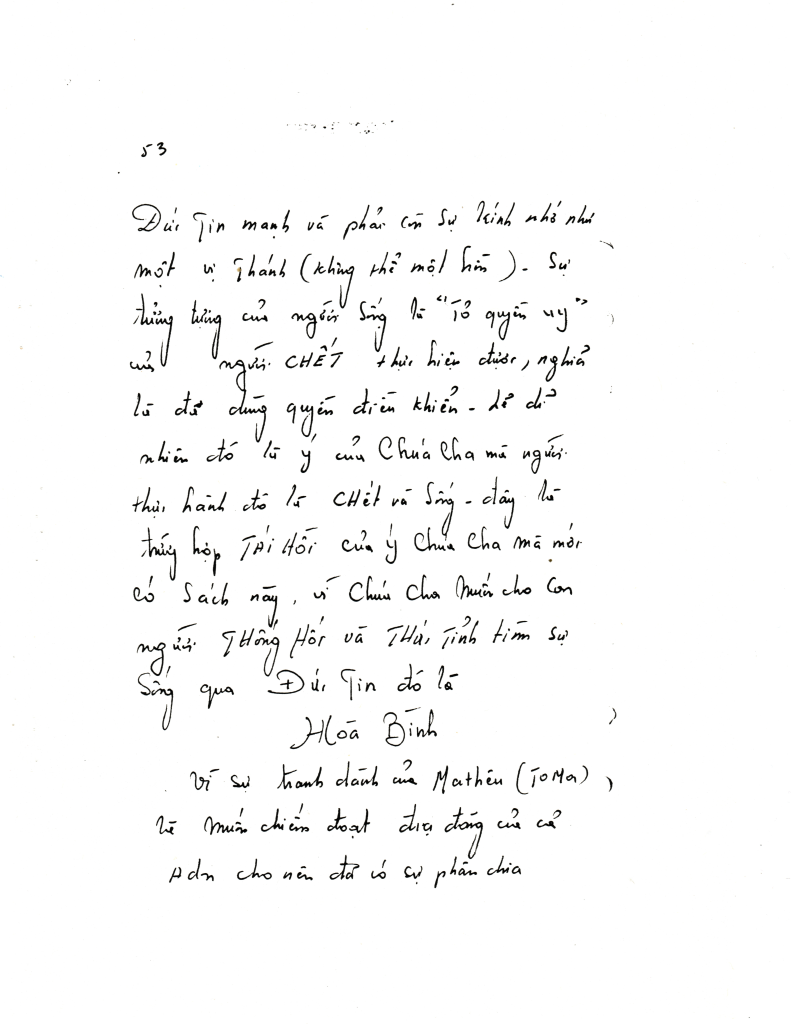 53
Đức Tin mạnh và phải còn sự kính nhớ như
một vị Thánh (không thể một hồn). Sự
tưởng tượng của người sống là "Tổ quyền uy"
của người CHẾT thực hiện được, nghĩa
là để dùng quyền điều khiển - dĩ
nhiên đó là ý của Chúa Cha mà người
thực hành đó là CHẾT và Sống - đây là
trường hợp TÁI HỒI của ý Chúa Cha mà mới
có Sách này, vì Chúa Cha muốn cho con
người THỐNG HỐI và THỨC TỈNH tìm sự
Sống qua Đức Tin đó là
HÒA BÌNH
Vì sự tranh dành của Mathêu (TOMA)
là muốn chiếm đoạt địa đàng của cả
Adn cho nên đã có sự phân chia